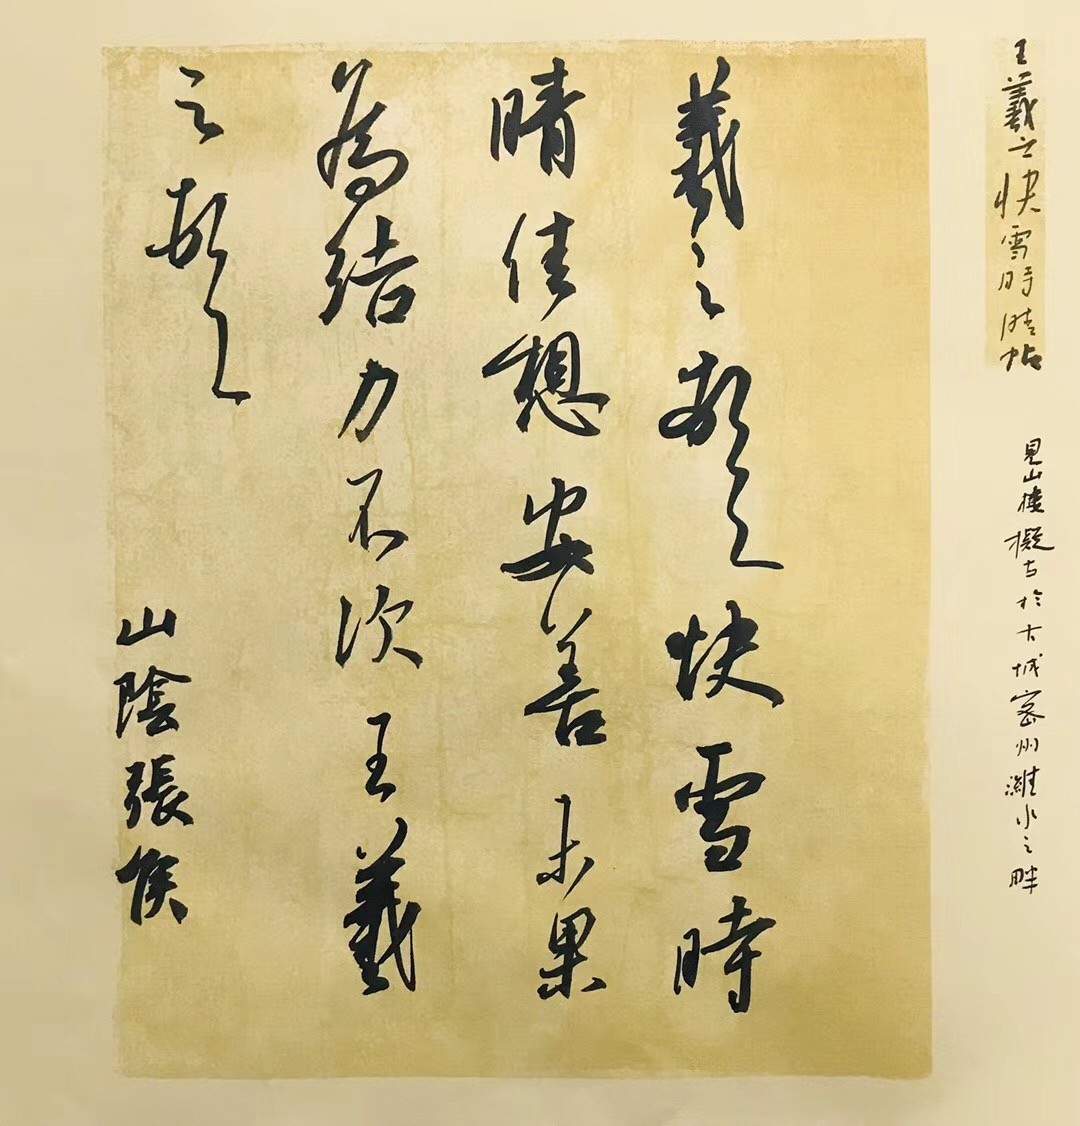 王羲之快雪時晴帖
見山楼擬古於古城密州濰水之畔
羲之頓首快雪時
晴佳想安善未果
為結力不次王羲
之頓首
山陰張侯